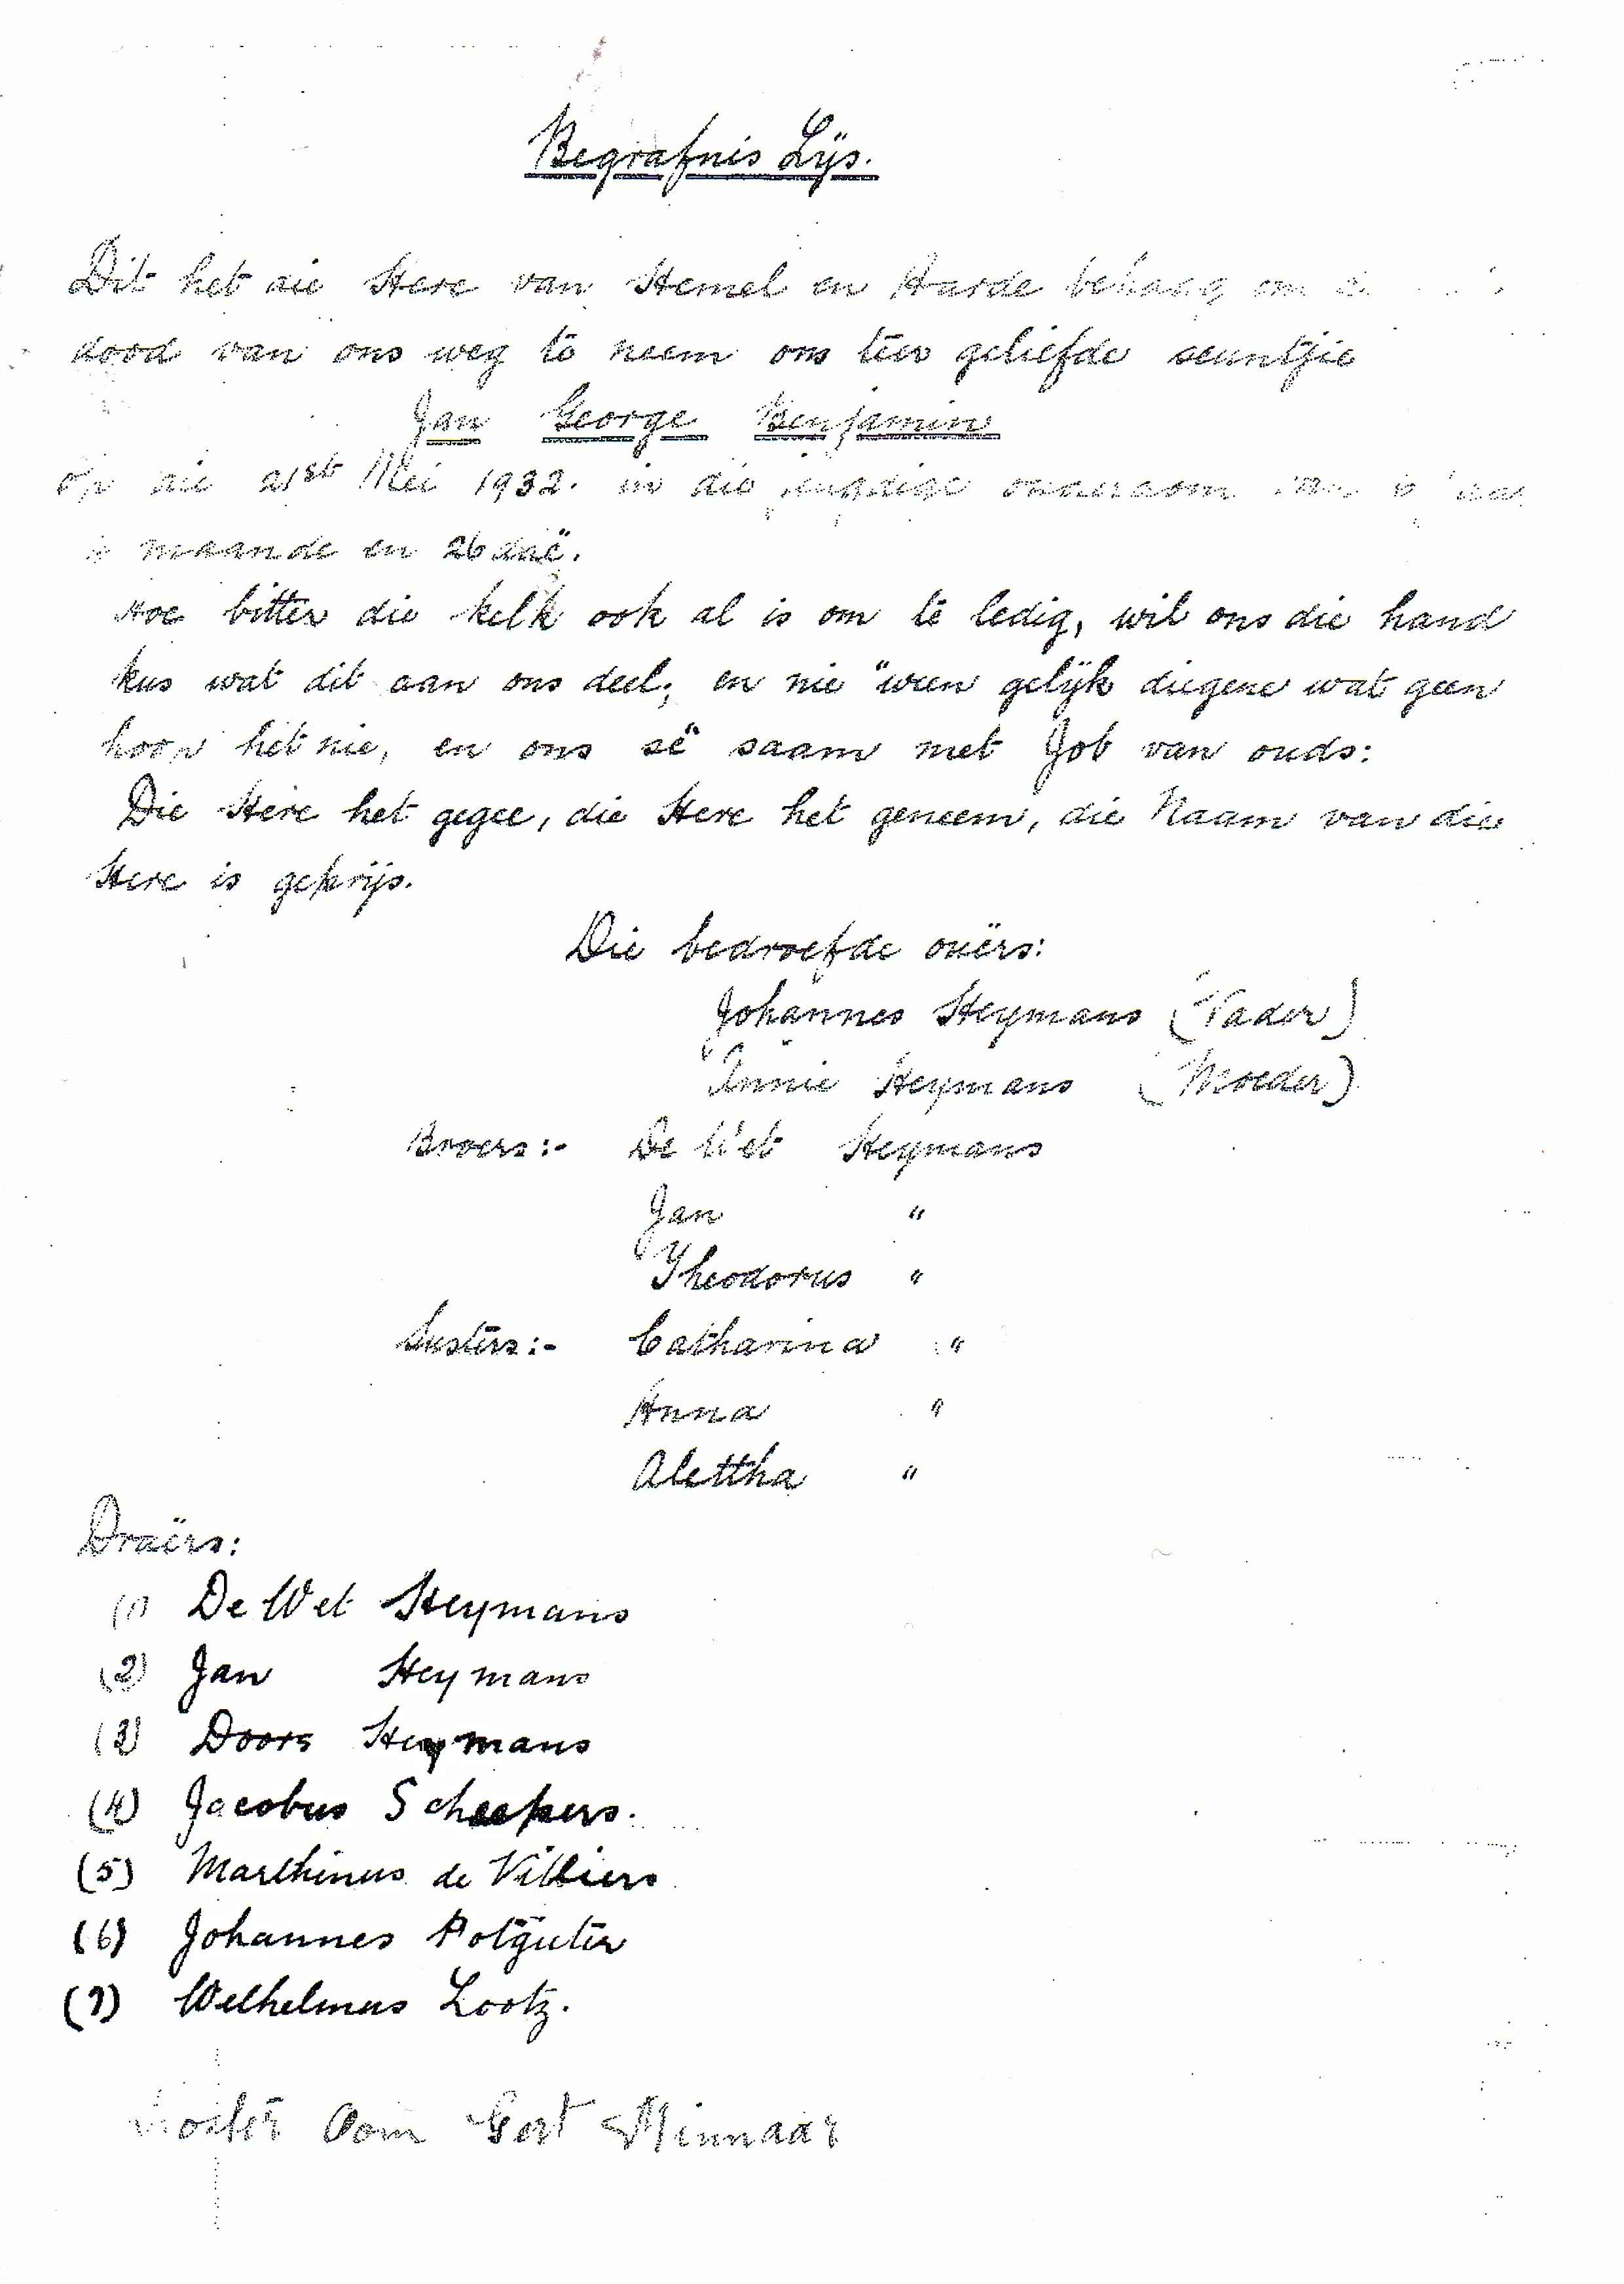 Begrafnis Lÿs.
Dit het die Here van Hemel en Aarde behaag om
dood van ons weg te neem ons teer geliefde seuntjie
Jan George Benjamin
op die 21st Mei 1932. in die jeugdige ouderdom van
maande en 26 daë.
Hoe bitter die kelk ook al is om te ledig, wil ons die hand
kus wat dit aan ons deel; en nie ween gelÿk diegene wat geen
hoop het nie, en ons sê saam met Job van ouds:
Die Here het gegee, die Here het geneem, die Naam van die
Here is geprijs.
Die bedroefde ouërs:
Johannes Heymans (Vader)
Annie Heymans (Moeder)
Broers:- De Wet Heymans
Jan "
Theodorus "
Susters:- Catharina "
Anna "
Alettha "
Draërs:
(1) De Wet Heymans
(2) Jan Heymans
(3) Doors Heymans
(4) Jacobus Scheepers.
(5) Marthinus de Villiers
(6) Johannes Potgieter
(7) Welhelmus Lootz.
Koster Oom Gert Minnaar